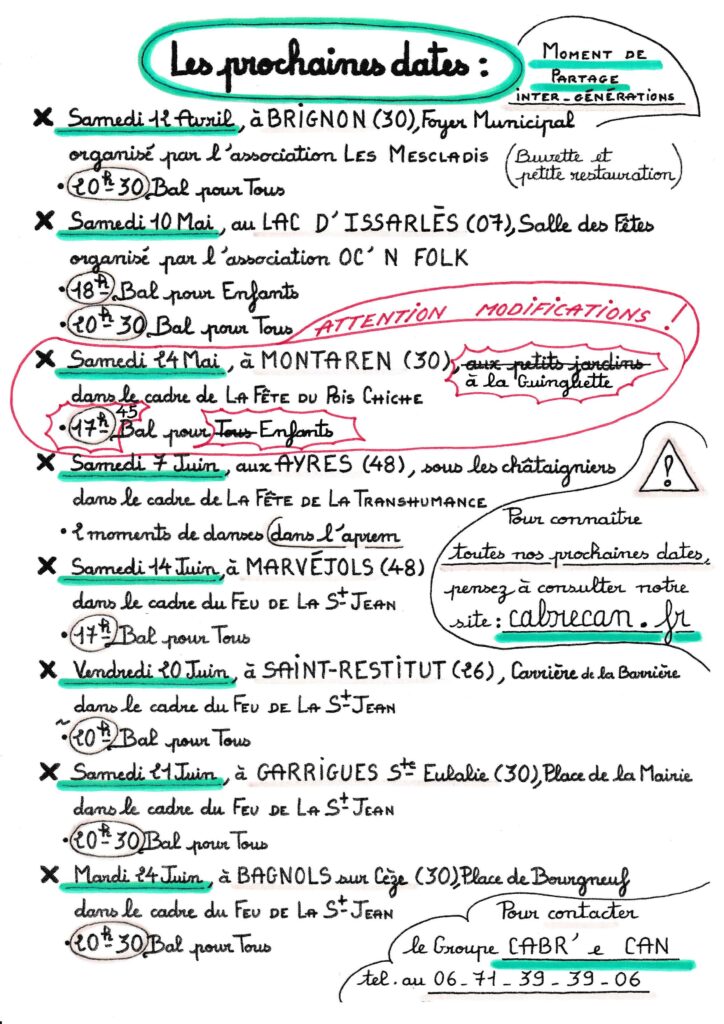 Les prochaines dates :
MOMENT DE
PARTAGE
INTER-GÉNÉRATIONS
Samedi 12 Avril, à BRIGNON (30), Foyer Municipal
organisé par l'association LES MESCLADIS
(Buvette et
petite restauration)
• 20h30 Bal pour Tous
Samedi 10 Mai, au LAC D'ISSARLÈS (07), Salle des Fêtes
organisé par l'association OC' N FOLK
• 18h Bal pour Enfants
• 20h30 Bal pour Tous
ATTENTION MODIFICATIONS !
Samedi 24 Mai, à MONTAREN (30), aux petits jardins
à la Guinguette
dans le cadre de LA FÊTE DU POIS CHICHE
• 17h45 Bal pour Tous Enfants
Samedi 7 Juin, aux AYRES (48), sous les châtaigniers
dans le cadre de LA FÊTE DE LA TRANSHUMANCE
• 2 moments de danses dans l'aprem
!
Pour connaître
toutes nos prochaines dates,
pensez à consulter notre
site : cabrecan.fr
Samedi 14 Juin, à MARVÉJOLS (48)
dans le cadre du FEU DE LA St JEAN
• 17h Bal pour Tous
Vendredi 20 Juin, à SAINT-RESTITUT (26), Carrière de la Barrière
dans le cadre du FEU DE LA St JEAN
• 20h Bal pour Tous
Samedi 21 Juin, à GARRIGUES Ste Eulalie (30), Place de la Mairie
dans le cadre du FEU DE LA St JEAN
• 20h30 Bal pour Tous
Mardi 24 Juin, à BAGNOLS sur Cèze (30), Place de Bourgneuf
dans le cadre du FEU DE LA St JEAN
• 20h30 Bal pour Tous
Pour contacter
le Groupe CABR' e CAN
tel. au 06-71-39-39-06